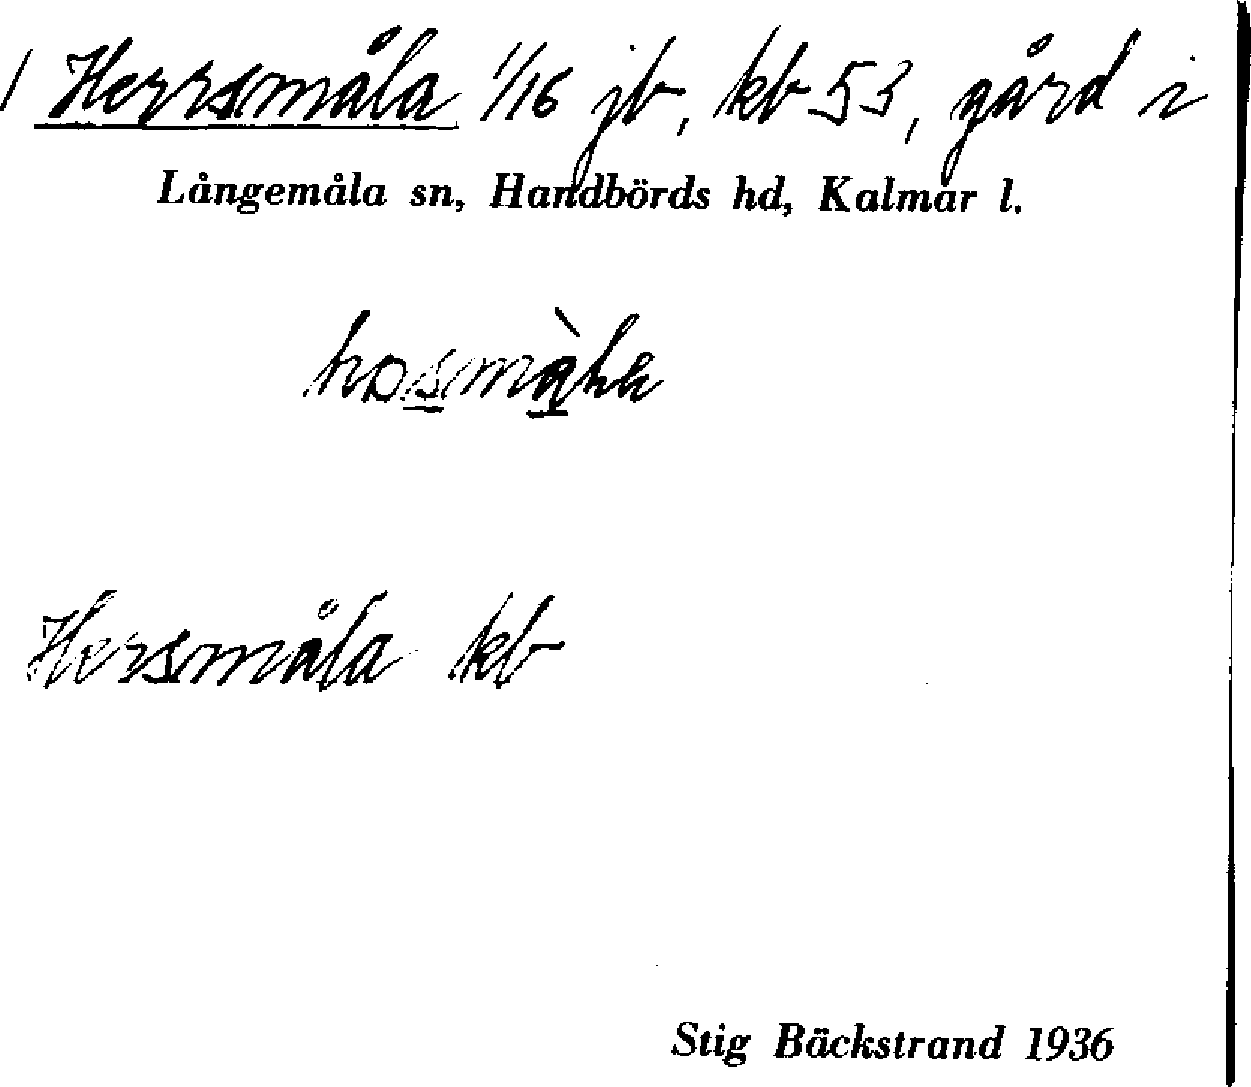 / Herrsmåla 1/16 jb, kb 53, gård i
Långemåla sn, Handbörds hd, Kalmar l.
Hersmåla kb
Stig Bäckstrand 1936